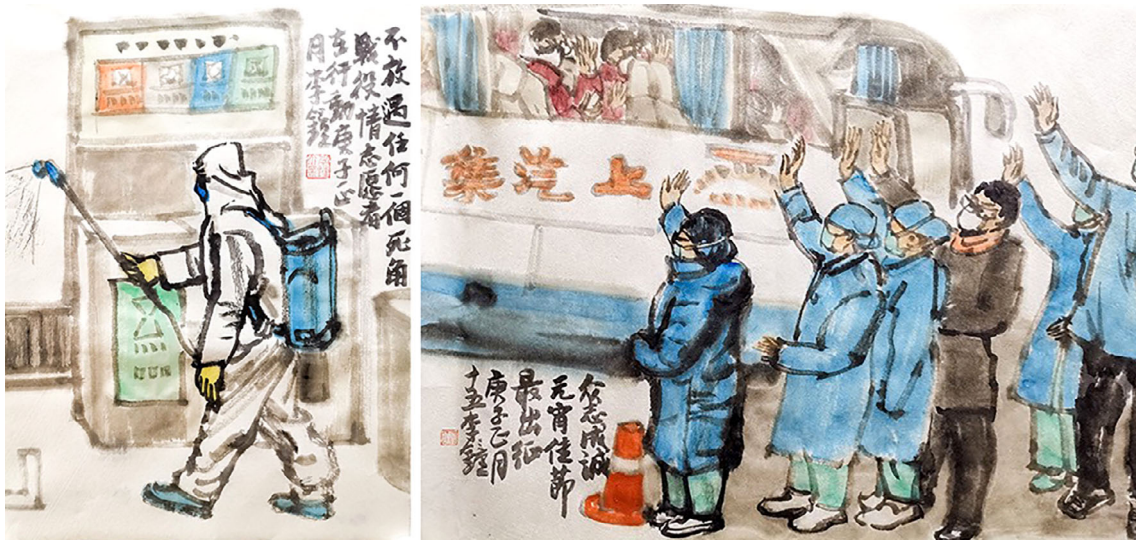 不放過任何一個死角
戰役情志愿者
在行動庚子正
月李鐘
集汽上
众志成誠
元宵佳節
最出征
庚子正月
十五李鐘